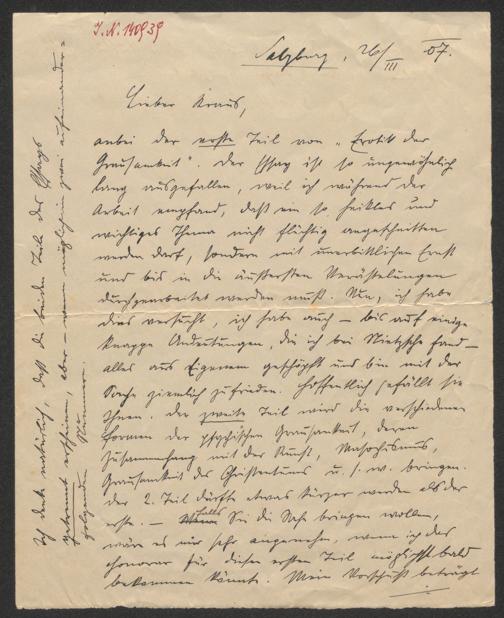 I. N. 140939
Salzburg, 26/III 07.
Lieber Kraus,
anbei der erste Teil von „Erotik der
Grausamkeit". Der Essay ist so ungewöhnlich
lang ausgefallen, weil ich während der
Arbeit empfand, daß ein so heikles und
wichtiges Thema nicht flüchtig angeschnitten
werden darf, sondern mit unerbittlichem Ernst
und bis in die äußersten Verästelungen
durchgearbeitet werden muß. Nun, ich habe
dies versucht, ich habe auch – bis auf einige
knappe Andeutungen, die ich bei Nietzsche fand –
alles aus Eigenem geschöpft und bin mit der
Sache ziemlich zufrieden. Hoffentlich gefällt sie
Ihnen. Der zweite Teil wird die verschiedenen
Formen der psychischen Grausamkeit, deren
Zusammenhang mit der Kunst, Masochismus,
Grausamkeit des Christentums u. s. w. bringen.
Der 2. Teil dürfte etwas kürzer werden als der
erste. – Falls Sie die Sache bringen wollen,
wäre es mir sehr angenehm, wenn ich das
Honorar für diesen ersten Teil möglichst bald
bekommen könnte. Mein Vorschuß beträgt
Ich denke natürlich, daß die beiden Teile des Essays
getrennt erscheinen, aber – wenn möglich in zwei aufeinander=
folgenden Nummern.